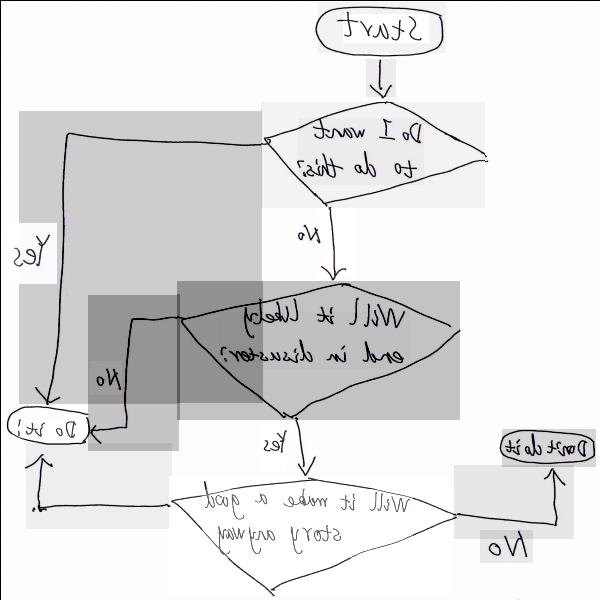 Start
Do I want
to do this?
Yes
No
Will it likely
end in disaster?
No
Do it!
Yes
Don't do it
Will it make a good
story anyway
No